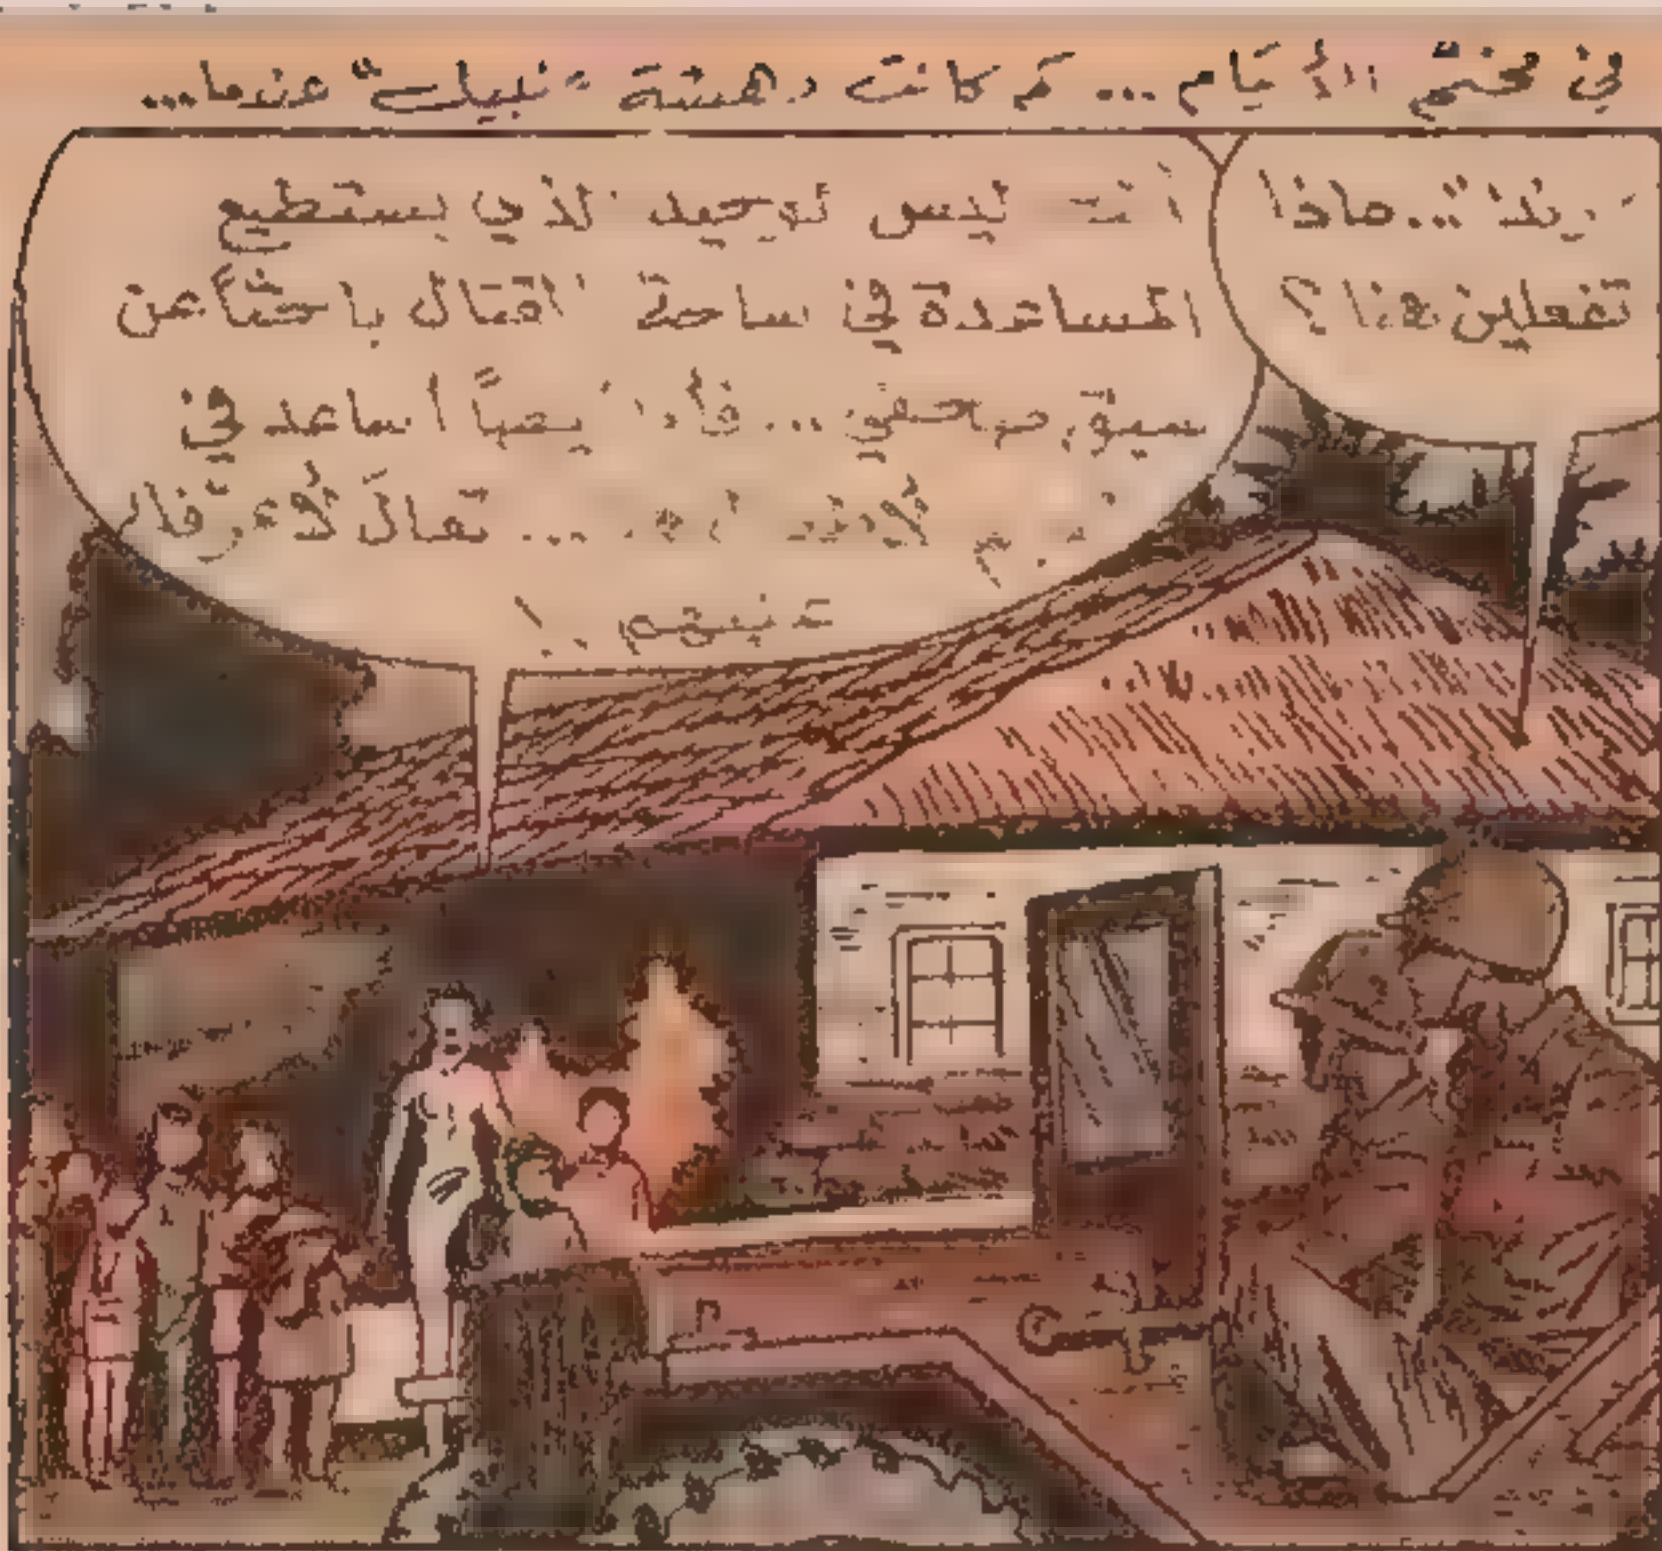 في مخيّم الأيتام... كم كانت دهشة "نبيل" عندما...
"رندا"... ماذا
تفعلين هنا؟
أنت ليس الوحيد الذي يستطيع
المساعدة في ساحة القتال باحثاً عن
سبق صحفي... فأنا أيضاً أساعد في
الأولاد ... تعال لأعرّفك